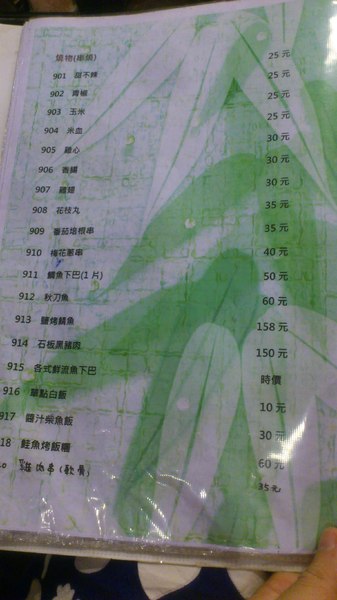 燒物(串燒)
901 甜不辣 25元
902 青椒 25元
903 玉米 25元
904 米血 25元
905 雞心 30元
906 香腸 30元
907 雞翅 30元
908 花枝丸 35元
909 番茄培根串 35元
910 梅花蔥串 40元
911 鯛魚下巴(1片) 50元
912 秋刀魚 60元
913 鹽烤鯖魚 158元
914 石板黑豬肉 150元
915 各式鮮流魚下巴 時價
916 單點白飯 10元
917 醬汁柴魚飯 30元
18 鮭魚烤飯糰 60元
雞肉串(軟骨) 35元